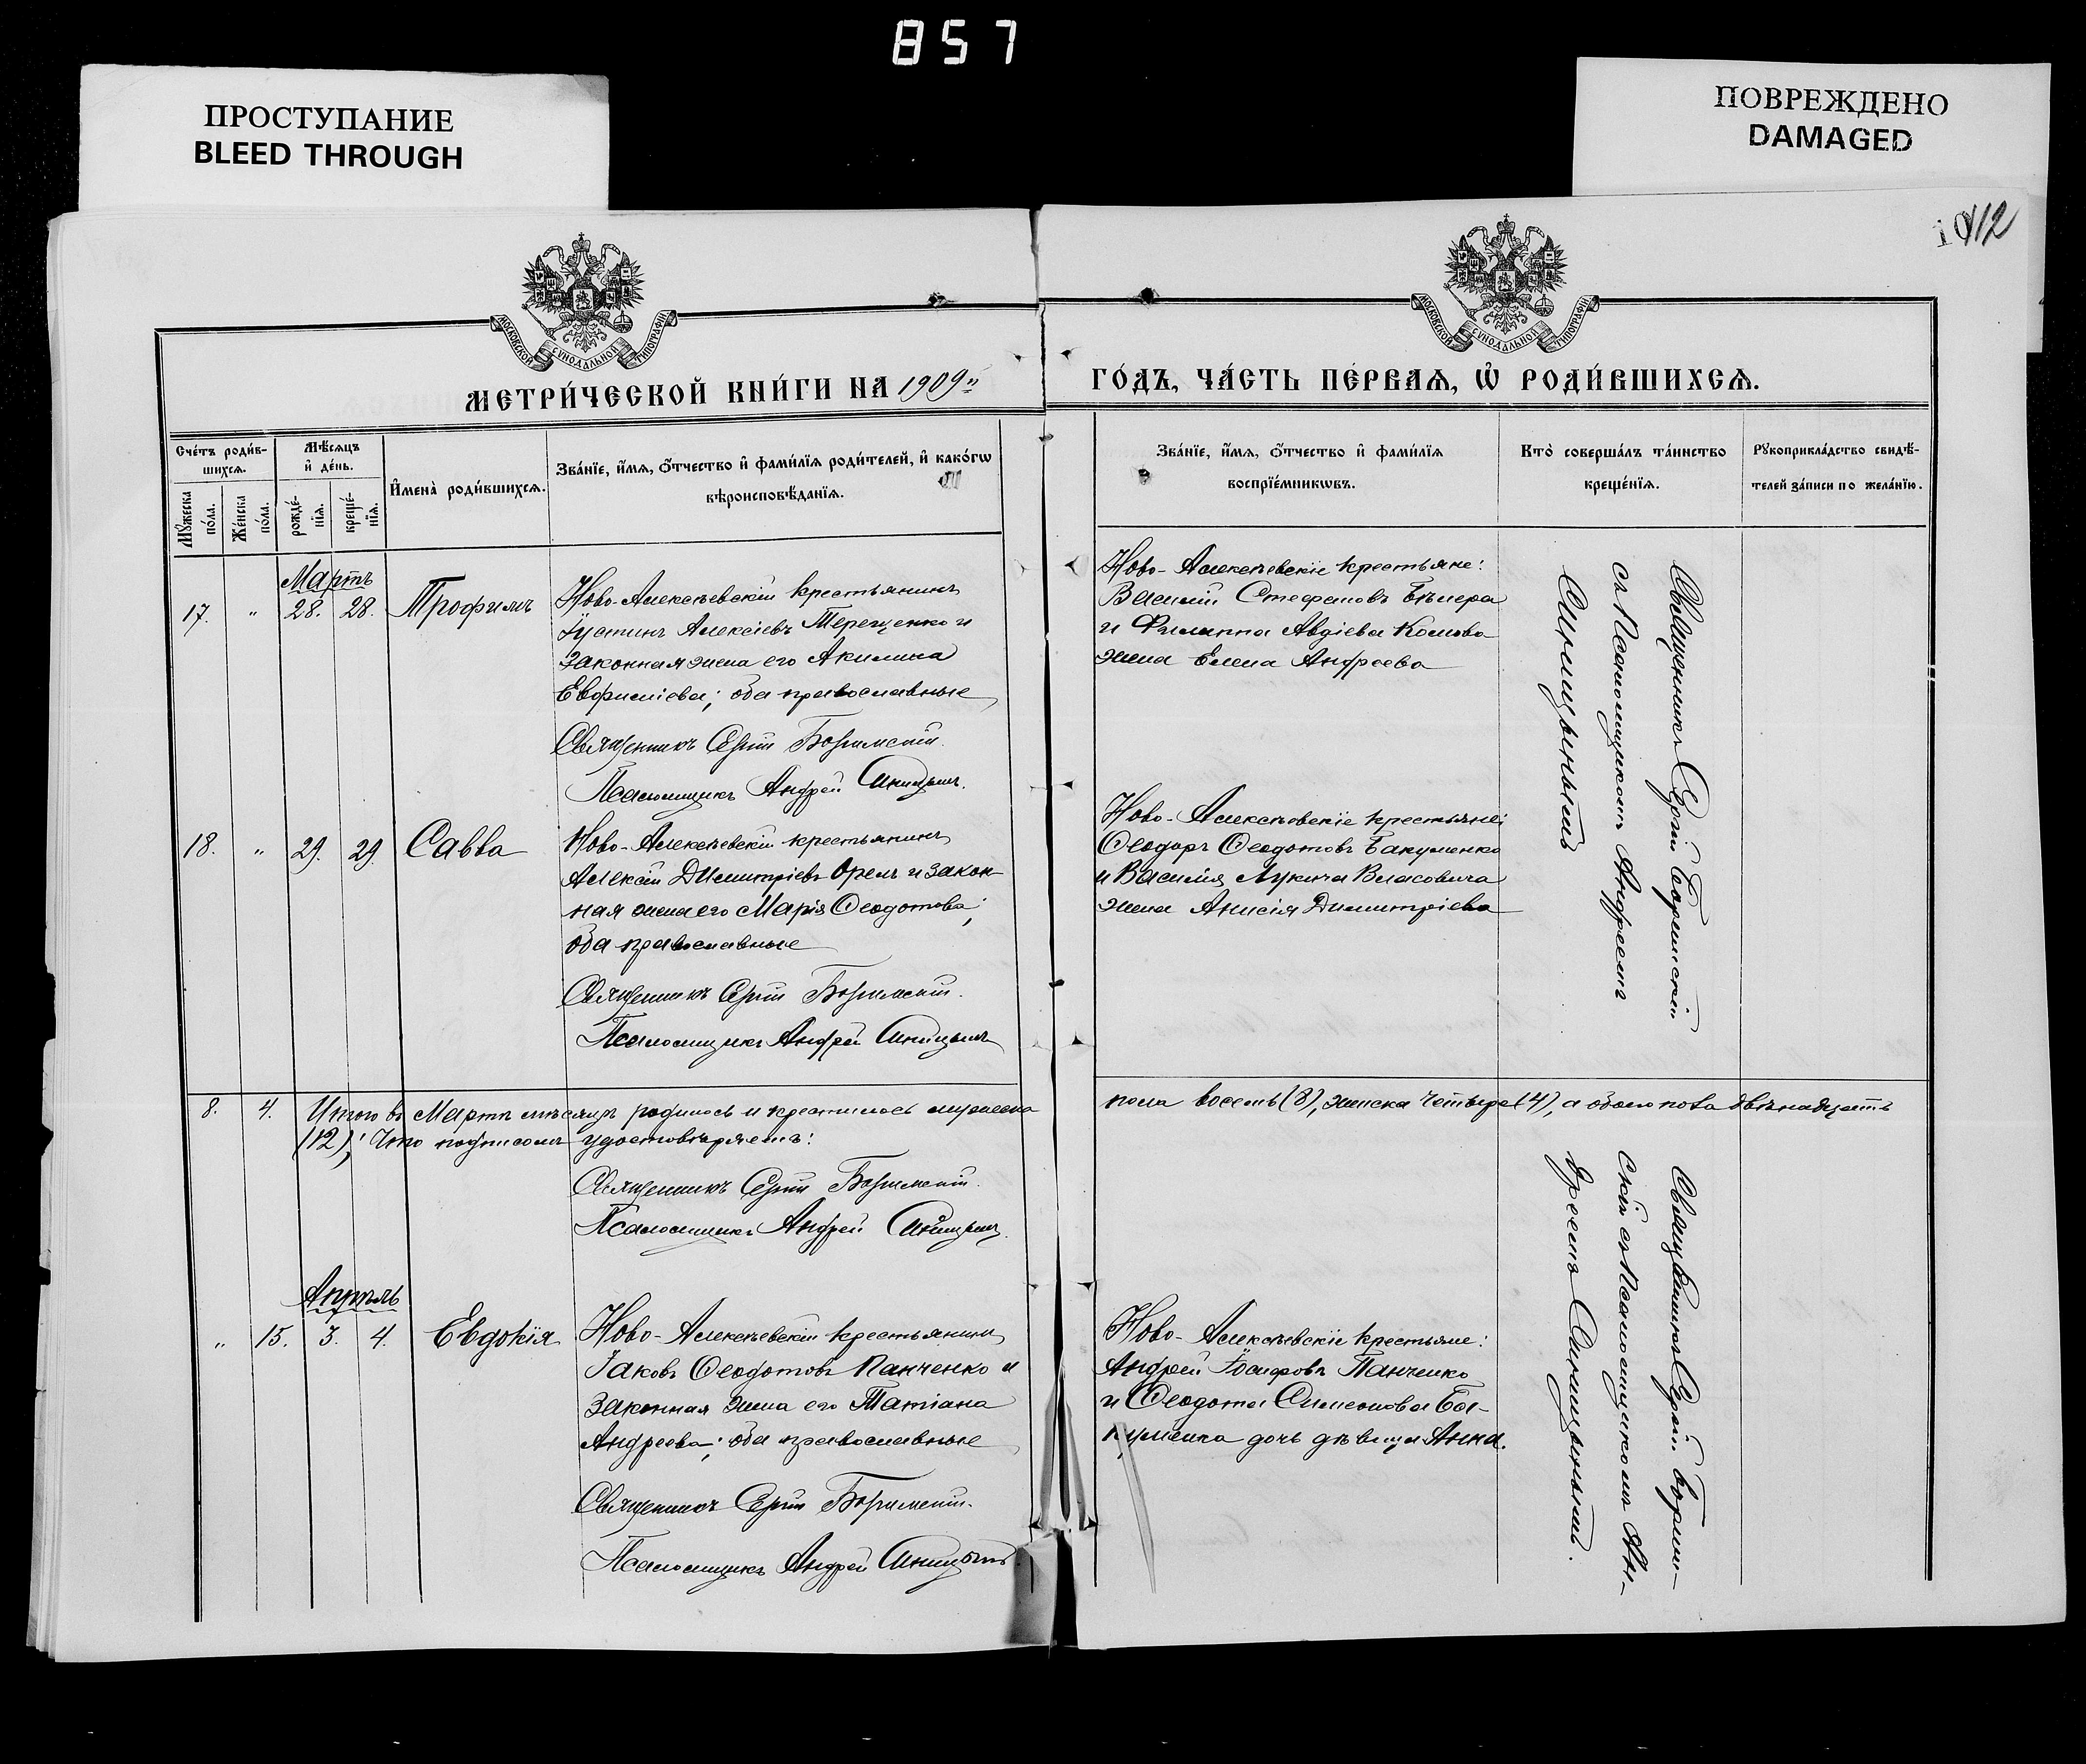 857
ПРОСТУПАНИЕ
BLEED THROUGH
ПОВРЕЖДЕНО
DAMAGED
1012
МОСКОВСКОЙ СѴНОДАЛЬНОЙ ТИПОГРАФІИ
МОСКОВСКОЙ СѴНОДАЛЬНОЙ ТИПОГРАФІИ
МЕТРИ́ЧЕСКОЙ КНИ́ГИ НА 1909 ГО́ДЪ, ЧА́СТЬ ПЕ́РВАѦ, Ѡ҆ РОДИ́ВШИХСѦ.
Сче́тъ роди́в-
шихсѧ.
Мѣ́сѧцъ
и҆ де́нь.
Мꙋ́жеска
по́ла.
Же́нска
по́ла.
рожде́-
нїѧ.
креще́-
нїѧ.
И҆мена̀ роди́вшихсѧ.
Зва́нїе, и҆́мѧ, ѻ҆́тчество и҆ фами́лїѧ роди́телей, и҆ како́гѡ
вѣроисповѣ́данїѧ.
Зва́нїе, и҆́мѧ, ѻ҆́тчество и҆ фами́лїѧ
воспрїе́мникѡвъ.
Кто̀ соверша́лъ та́инство
креще́нїѧ.
Рꙋкоприкла́дство свидѣ́-
телей за́писи по жела́нїю.
Мартъ
17. " 28. 28. Трофимъ
Ново-Алексѣевскій крестьянинъ
Іустинъ Алексіевъ Терещенко и
законная жена его Акилина
Евфиміева; оба православные
Священникъ Сергій Боримскій.
Псаломщикъ Андрей Синицынъ.
Ново-Алексѣевскіе крестьяне:
Василій Стефановъ
и Филиппа Авдіева
жена Елена Андреева
Священникъ Сергій Боримскій
съ Псаломщикомъ Андреемъ
Синицынымъ
18. " 29. 29. Савва
Ново-Алексѣевскій крестьянинъ
Алексій Димитріевъ Орелъ и закон-
ная жена его Марія Ѳеодотова;
оба православные
Священникъ Сергій Боримскій.
Псаломщикъ Андрей Синицынъ
Ново-Алексѣевскіе крестьяне:
Ѳеодоръ Ѳеодотовъ Бакуменко
и Василія Лукича Власовича
жена Анисія Димитріева
8. 4. Итого въ Мартѣ мѣсяцѣ родилось и крестилось мужеска пола восемь (8), женска четыре (4), а обоего пола двѣнадцать
(12); Что подписомъ удостовѣряемъ:
Священникъ Сергій Боримскій.
Псаломщикъ Андрей Синицынъ.
Апрѣль
" 15. 3. 4. Евдокія
Ново-Алексѣевскій крестьянинъ
Іаковъ Ѳеодотовъ Панченко и
законная жена его Татіана
Андреева; оба православные
Священникъ Сергій Боримскій.
Псаломщикъ Андрей Синицынъ
Ново-Алексѣевскіе крестьяне:
Андрей Іосифовъ Панченко
и Ѳеодота Симеонова Ба-
куменка дочь дѣвица Анна.
Священникъ Сергій Борим-
скій съ Псаломщикомъ Ан-
дреемъ Синицынымъ.